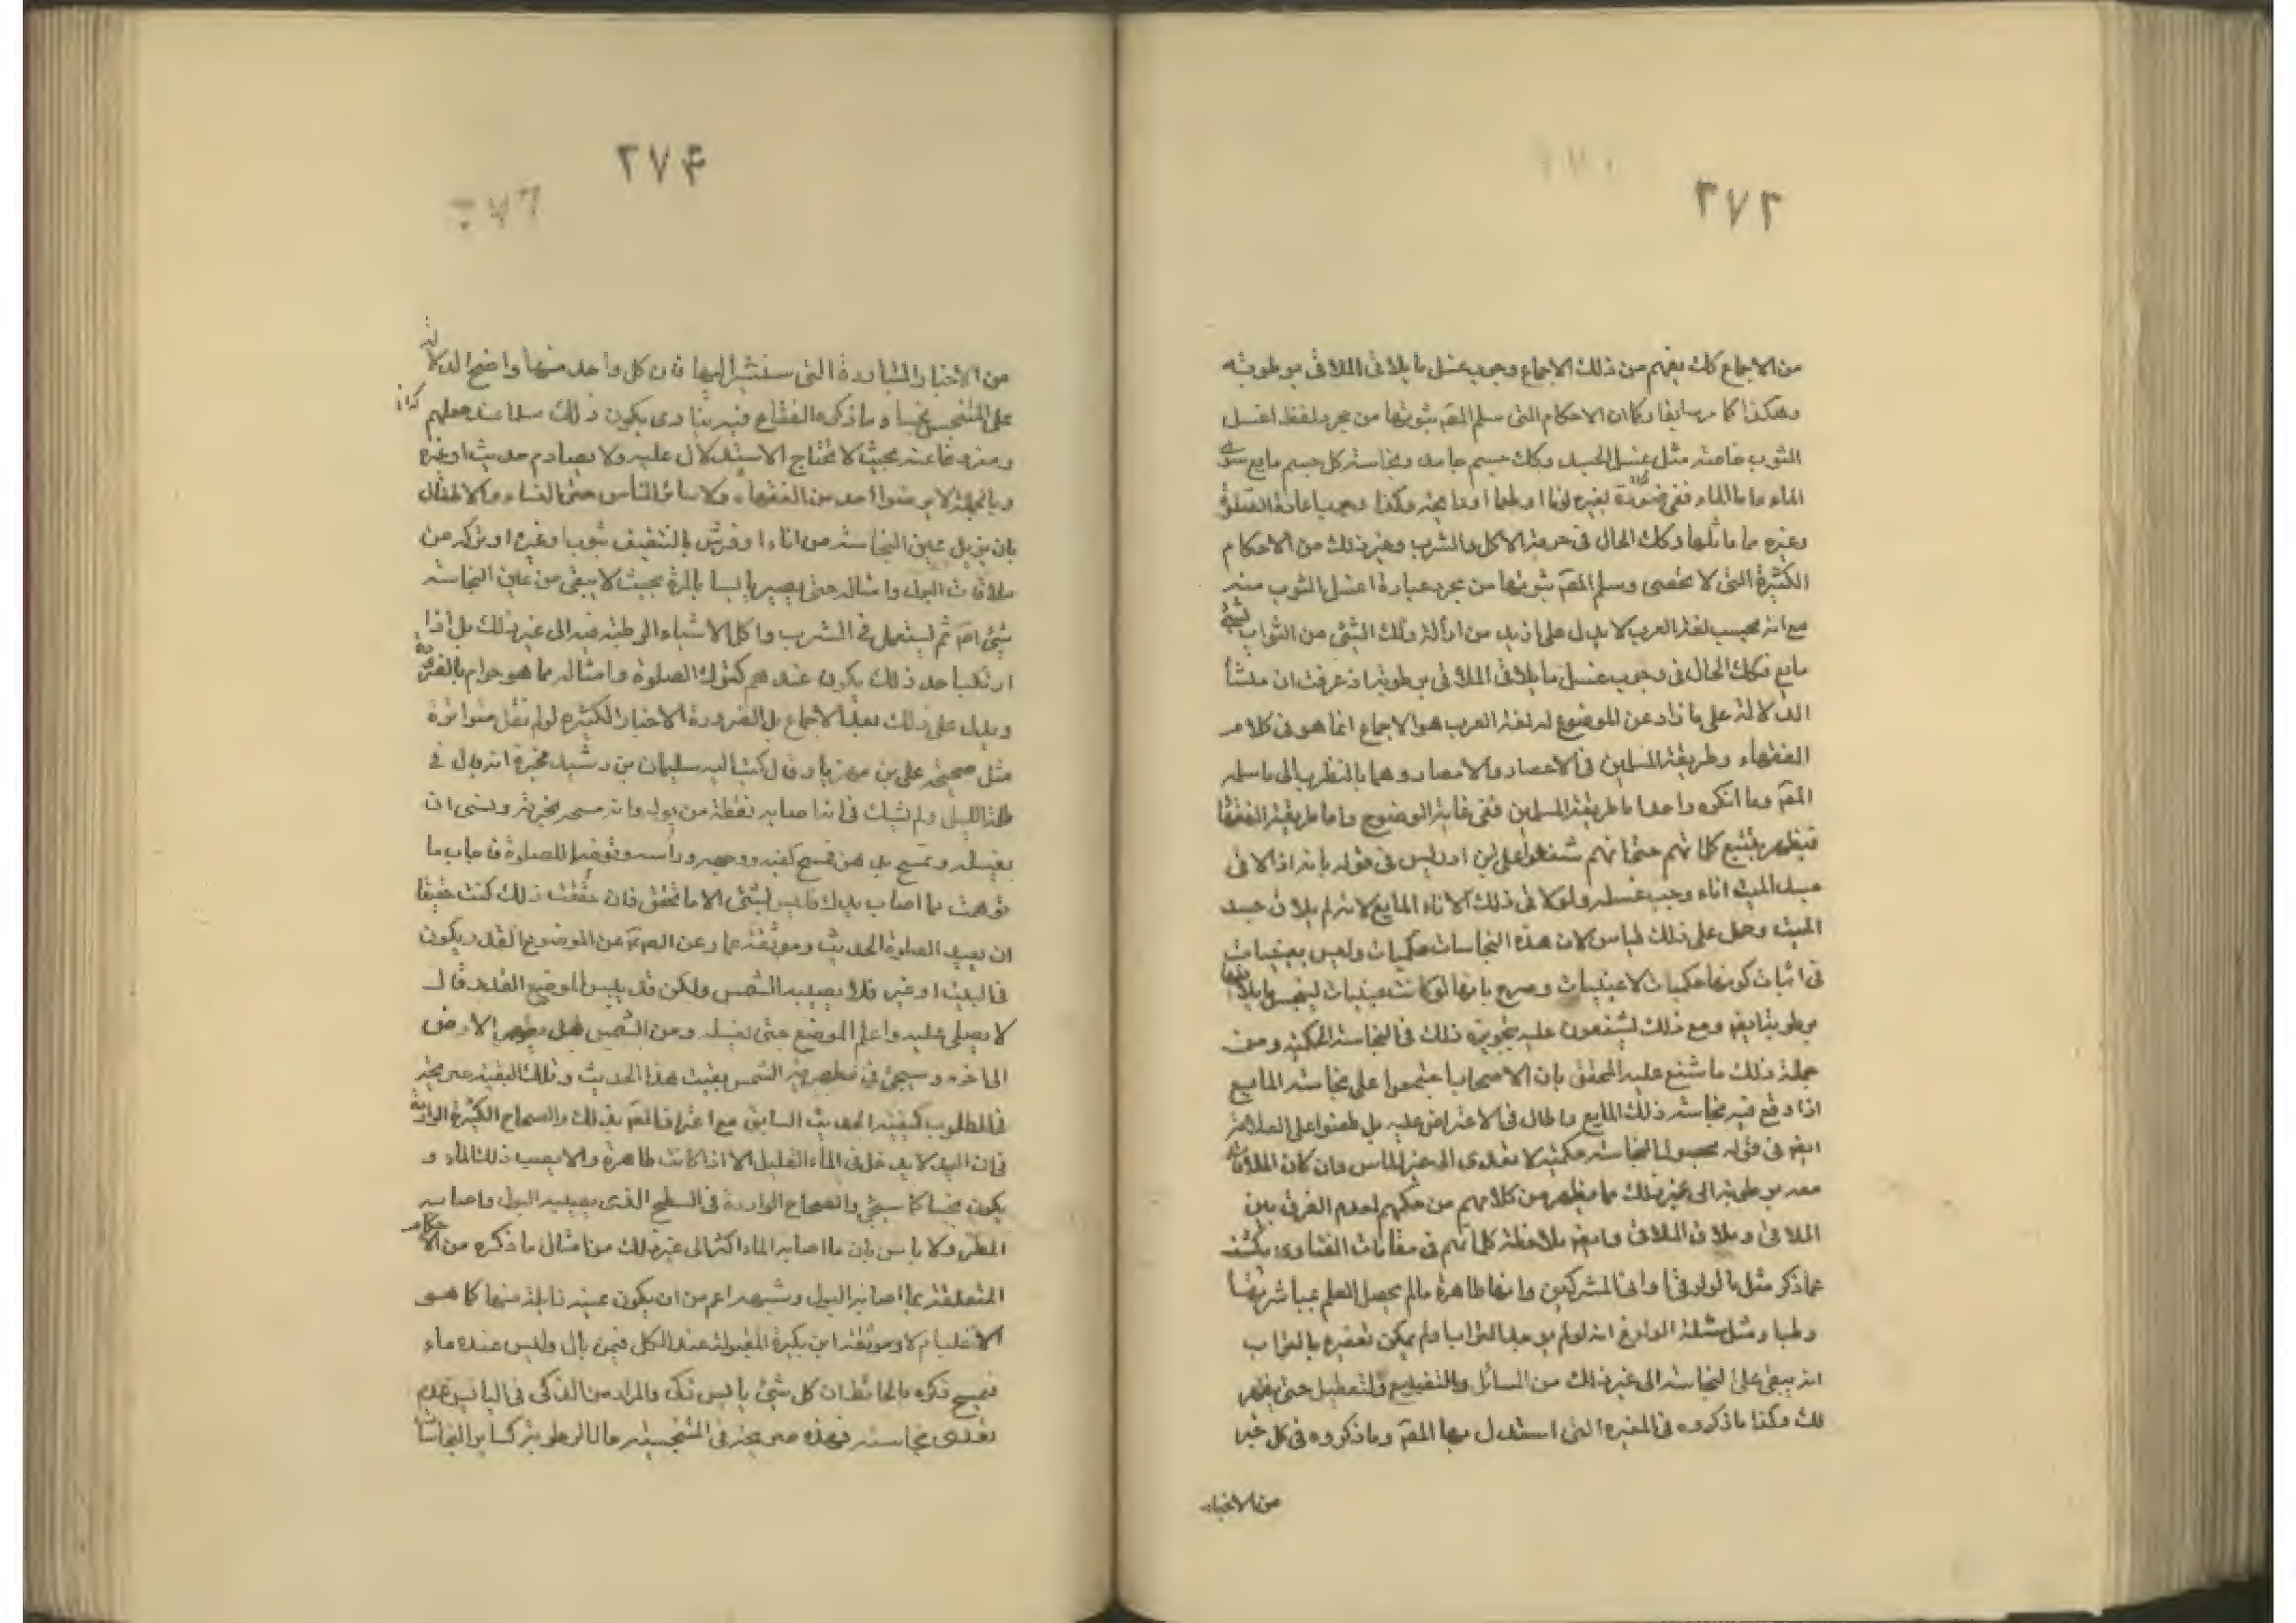 ٢٧٣
من الاجماع كك يفهم من ذلك الاجماع وجوب غسل ما يلاقى الملاقى برطوبته
وهكذا كما مر سابقا وكما ان الاحكام التى سلم المقم ثبوتها من مجرد لفظ اغسل
الثوب خاصة مثل غسل الجسد وكك جسم جامد ونجاسة كل جسم مايع سوى
الماء واما الماء ففى صورة تغيره لونا او طعما او رايحة وكذا وجوب اعادة الصلوة
وغيره مما ماثلها وكك الحال فى حرمة الاكل والشرب وغير ذلك من الاحكام
الكثيرة التى لا تحصى وسلم المقم ثبوتها من مجرد عبارة اغسل الثوب منه
مع انه بحسب لغة العرب لا يدل على ازيد من ازالة ذلك الشئ من الثواب بشئ
مايع فكك الحال فى وجوب غسل ما يلاقى الملاقى برطوبة اذ عرفت ان منشأ
الدلالة على ما زاد عن الموضوع له لغة العرب هو الاجماع انما هو فى كلام
الفقهاء وطريقة المسلمين فى الاعصار والامصار وهما بالنظر الى ما سلمه
المقم وما انكره واحد اما طريقة المسلمين ففى غاية الوضوح واما طريقة الفقها
فيظهر بتتبع كلماتهم حتى انهم شنعوا على ابن ادريس فى قوله بانه اذا لاقى
جسد الميت اناء وجب غسله ولو لاقى ذلك الاناء المايع لا ينجس لانه لم يلاق جسد
الميت وحمل على ذلك قياس لان هذه النجاسات حكميات وليس بعينيات
فى اثبات كونها حكميات لا عينيات وصرح بانها لو كانت عينيات لينجس ما يلاقيها
برطوبة ايض ومع ذلك يشنعون عليه بتجويزه ذلك فى النجاسة الحكمية ومن
جملة ذلك ما شنع عليه المحقق بان الاصحاب اجتمعوا على نجاسة المايع
اذا وقع فيه نجاسة ذلك المايع واطال فى الاعتراض عليه بل طعنوا على العلامة
ايض فى قوله بحصول النجاسة حكمية لا تتعدى الى غير الماس وان كان الملاقاة
معه برطوبة الى غير ذلك مما يظهر من كلامهم من حكمهم لعدم الفرق بين
الملاقى وملاقى الملاقى وايض ملاحظة كلماتهم فى مقامات الفتاوى يكشف
عما ذكر مثل ما اورد فى اوانى المشركين وانها طاهرة مالم يحصل العلم بمباشرتها
رطبا ومثل مسئلة الولوغ انه لو لم يوجد التراب او لم يمكن تعفيره بالتراب
انه يبقى على النجاسة الى غير ذلك من المسائل والتفريع والتعطيل حتى يظهر
لك وكذا ما ذكروه فى المغيرة التى استدل بها المقم وما ذكروه فى كل خبر
من الاخبار
٢٧۴
من الاخبار المتباردة التى سنشير اليها فان كل واحد منها واضح الدلالة
على المتنجس نجسا وما ذكره الفقاع فيه ينادى بكون ذلك مسلما عند جعلهم
ومفروغا عنه بحيث لا يحتاج الاستدلال عليه ولا يصادم حديث او غيره
وبالجملة لا يرضوا احد من الفقهاء ولا سائر الناس حتى النساء والاطفال
بان يزيل عين النجاسة من اناء او فرش بالتنشيف بثوب او غيره او تركه من
ملاقات البول وامثاله حتى يصير يابسا بالمرة بحيث لا يبقى من عين النجاسة
شئ اصم ثم يستعمل فى الشرب واكل الاشياء الرطبة فيه الى غير ذلك بل اذا
ارتكب احد ذلك يكون عندهم كترك الصلوة وامثاله مما هو حرام بالضرورة
ويدل على ذلك بعد الاجماع بل الضرورة الاخبار الكثيرة لو لم نقل متواترة
مثل صحيحة على بن مهزيار قال كتب اليه سليمان بن رشيد يخبره انه بال فى
ظلمة الليل ولم يشك فى انه اصابه نقطة من بوله وانه مسحه بخرقة ونسى ان
يغسله وتمسح بدهن فمسح كفيه ووجهه وراسه وتوضا للصلوة فاجاب ما
توهمت مما اصاب يدك فليس بشئ الا ما تحقق فان حققت ذلك كنت حقيقا
ان تعيد الصلوة الحديث وموثقة عمار عن الصم عن الموضوع القذر يكون
فى البيت او غيره فلا يصيبه الشمس ولكن قد يبس الموضع القذر قال
لا يصلى عليه واعلم الموضع حتى تغسله ومن الشمس هل يطهر الارض
الى اخره وسيجئ فى مطهرية الشمس بقيت هذا الحديث وتلك البقية صريحة
فى المطلوب كبقية الحديث السابق مع اعتراف المقم بذلك والصحاح الكثيرة الواردة
فى ان اليد لا يدخل فى الماء القليل الا اذا كانت طاهرة والا يصب ذلك الماء و
يكون نجسا كما سيجئ والصحاح الواردة فى السطح الذى يصيبه البول واصابه
المطر ولا باس بان ما اصابه الماء اكثر الى غير ذلك من امثال ما ذكره من الاحكام
المتعلقة بما اصابه البول وشبهه اعم من ان يكون عينه زايلة منها كما هو
الاغلب ام لا وموثقة ابن بكيرة المقبولة عند الكل فيمن بال وليس عنده ماء
فمسح ذكره بالحائط ان كل شئ يابس ذكى والمراد من الذكى فى اليابس عدم
تعدى نجاسته فهذه صريحة فى المتنجسية حال الرطوبة كساير النجاسات